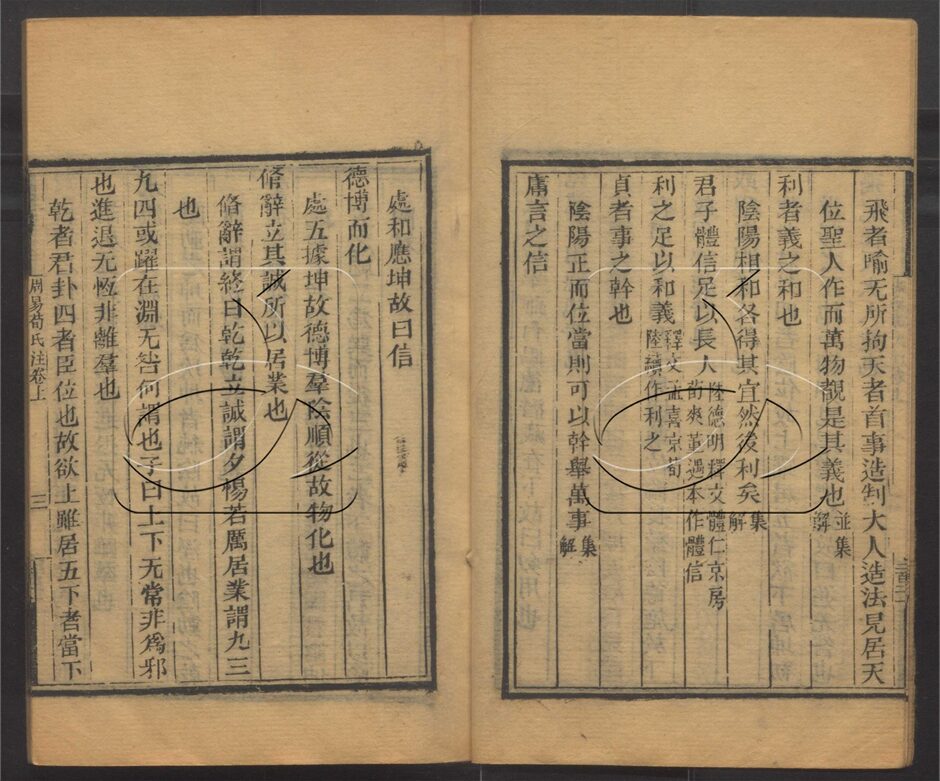 飛者喻无所拘天者首事造制大人造法見居天
位聖人作而萬物覩是其義也並集解
利者義之和也
陰陽相和各得其宜然後利矣集解
君子體信足以長人陸德明釋文體仁京房荀爽董遇本作體信
利之足以和義釋文孟喜京荀陸績作利之
貞者事之幹也
陰陽正而位當則可以幹舉萬事集解
庸言之信
處和應坤故曰信
德博而化
處五據坤故德博羣陰順從故物化也
脩辭立其誠所以居業也
脩辭謂終日乾乾立誠謂夕惕若厲居業謂九三
也
九四或躍在淵无咎何謂也子曰上下无常非爲邪
也進退无恆非離羣也
乾者君卦四者臣位也故欲上躍居五下者當下
周易荀氏注卷上
三